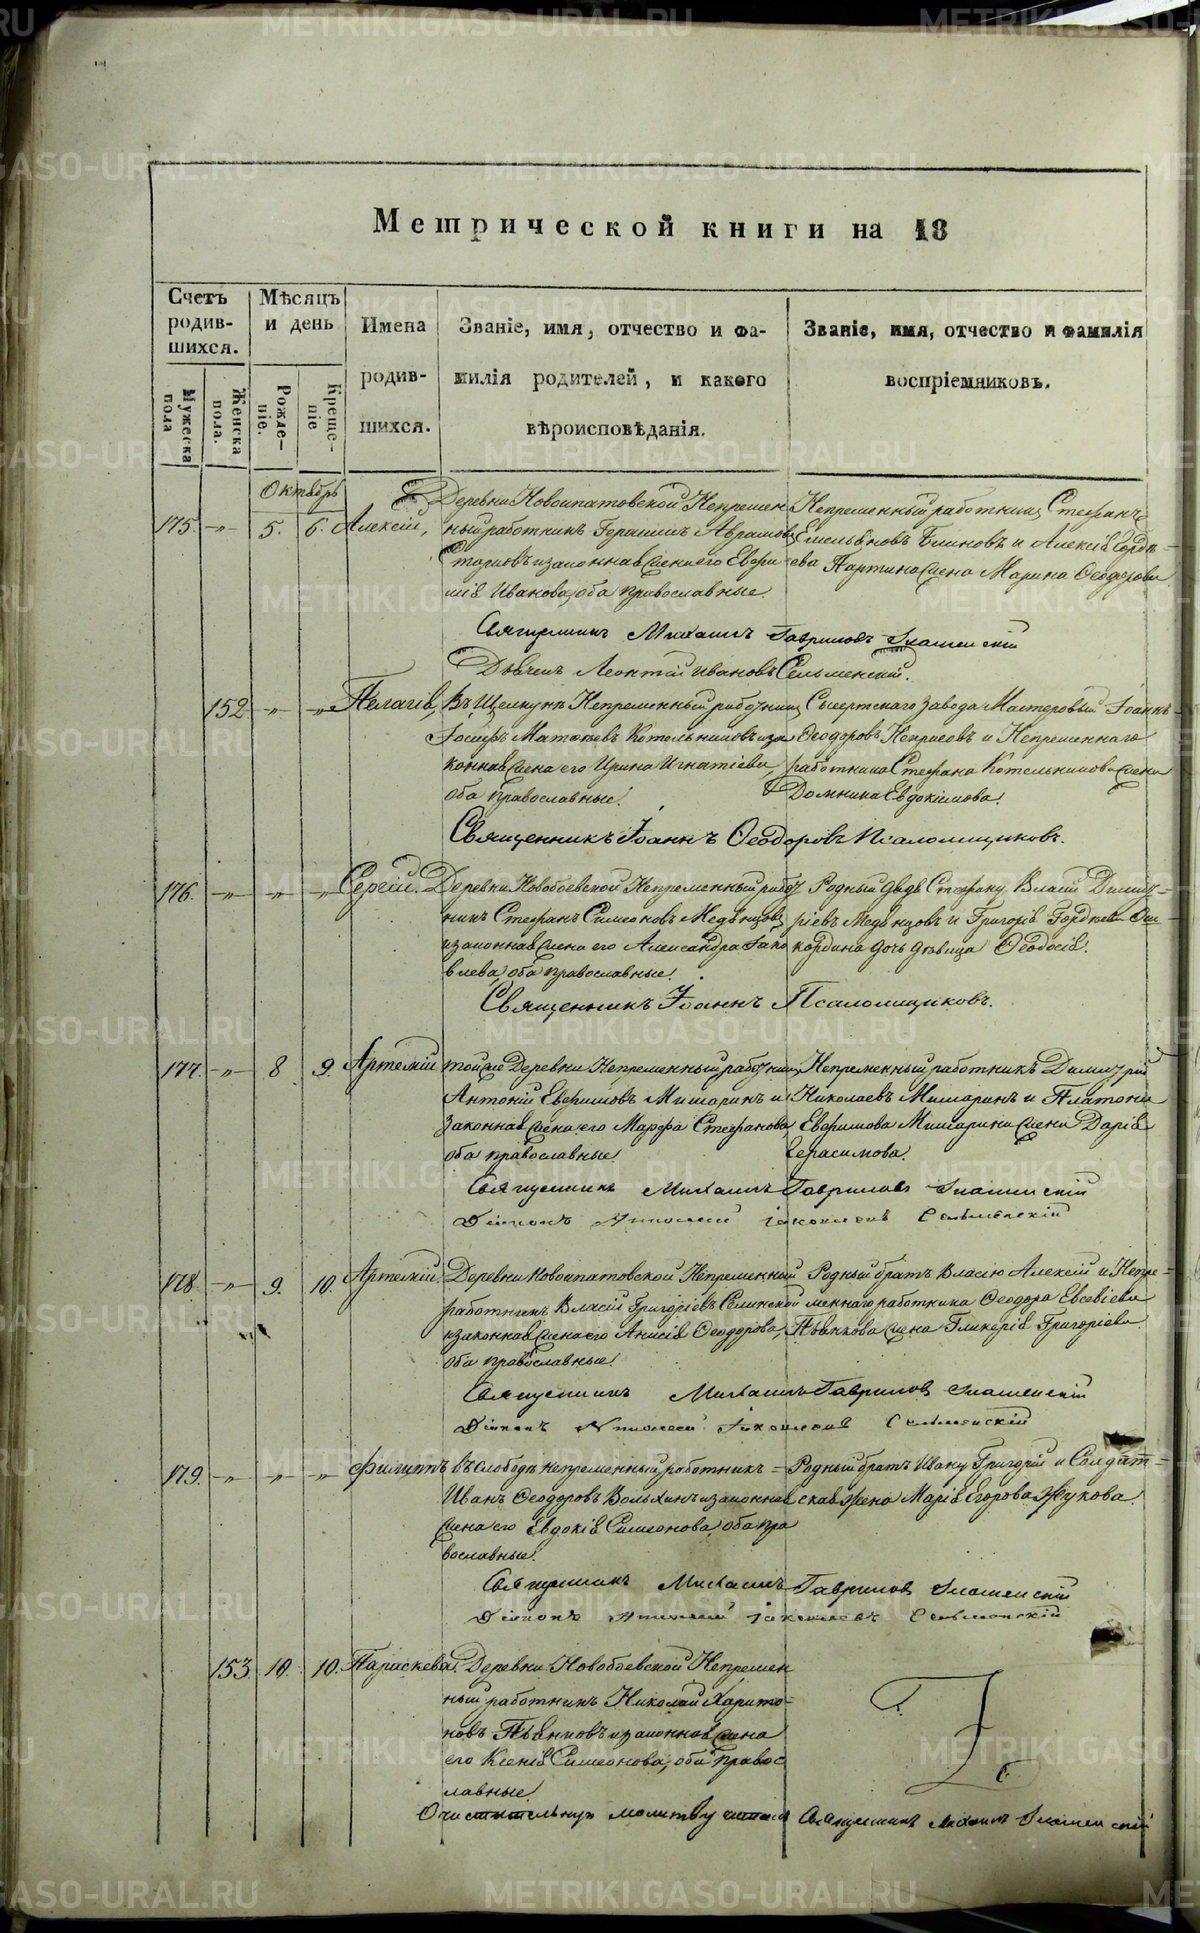 Метрической книги на 18
Счетъ родив-шихся.
Мужеска пола
Женска пола.
Мѣсяцъ и день
Рожде-ніе.
Креще-ніе
Имена родив-шихся.
Званіе, имя, отчество и фа-
милія родителей, и какого
вѣроисповѣданія.
Званіе, имя, отчество и фамилія
воспріемниковъ.
Октябрь
175. -„- 5. 6. Алексій,
Деревни Новоипатовской Непремен
ный работникъ Герасимъ Аврамовъ
и законная жена его Евфи
мія Иванова, оба православные.
Непременный работникъ Стефанъ
Емельяновъ Блиновъ и Алексія Горде-
ева жена Марина Ѳеодорова
Священникъ Михаилъ Гавриловъ Знаменскій
Леонтій Ивановъ Сельменскій.
152 -„- -„- Пелагія,
Въ Щелкунѣ Непременный работникъ
Іосифъ Матѳѣевъ Котельниковъ и за
конная жена его Ирина Игнатіева,
оба православные.
Сысертскаго завода Мастеровый Іоаннъ
Ѳеодоровъ и Непременнаго
работника Стефана Котельникова жена
Домника Евдокимова.
Священникъ Іоаннъ Ѳеодоровъ Псаломщиковъ.
176. -„- -„- -„- Сергій.
Деревни Новобоевской Непременный работ
никъ Стефанъ Симеоновъ Медянцовъ
и законная жена его Александра Іако
влева, оба православные.
Родный дядя Стефану Власій Димит-
ріевъ Медянцовъ и Григорія Гордѣева
дочь дѣвица Ѳеодосія.
Священникъ Іоаннъ Псаломщиковъ.
177. -„- 8. 9. Артемій
той же Деревни Непременный работникъ
Антоній Евфимовъ Мишаринъ и
законная жена его Марфа Стефанова
оба православные.
Непременный работникъ Димитрій
Николаевъ Мишаринъ и Платона
Евфимова Мишарина жена Дарія
Герасимова.
Священникъ Михаилъ Гавриловъ Знаменскій
Діаконъ Іаковлевъ Сельменскій
178. -„- 9. 10. Артемій.
Деревни Новоипатовской Непременный
работникъ Власій Григоріевъ
и законная жена его Анисія Ѳеодорова,
оба православные.
Родный братъ Власію Алексій и Непре-
меннаго работника Ѳеодора Евсевіева
Пьянкова жена Гликерія Григоріева.
Священникъ Михаилъ Гавриловъ Знаменскій
Діаконъ Іаковлевъ Сельменскій
179. -„- -„- -„- Филиппъ
въ Слободѣ непременный работникъ =
Иванъ Ѳеодоровъ Волыхинъ и законная
жена его Евдокія Симеонова, оба пра
вославные.
Родный братъ Ивану Григорій и Солдат-
ская жена Марія Егорова Жукова.
Священникъ Михаилъ Гавриловъ Знаменскій
Діаконъ Іаковлевъ Сельменскій
153 10. 10. Параскева.
Деревни Новобоевской Непремен
ный работникъ Николай Харито-
новъ Пьянковъ и законная жена
его Ксенія Симеонова, оба правос
лавные.
Очистительную молитву читалъ Священникъ Михаилъ Знаменскій
METRIKI.GASO-URAL.RU